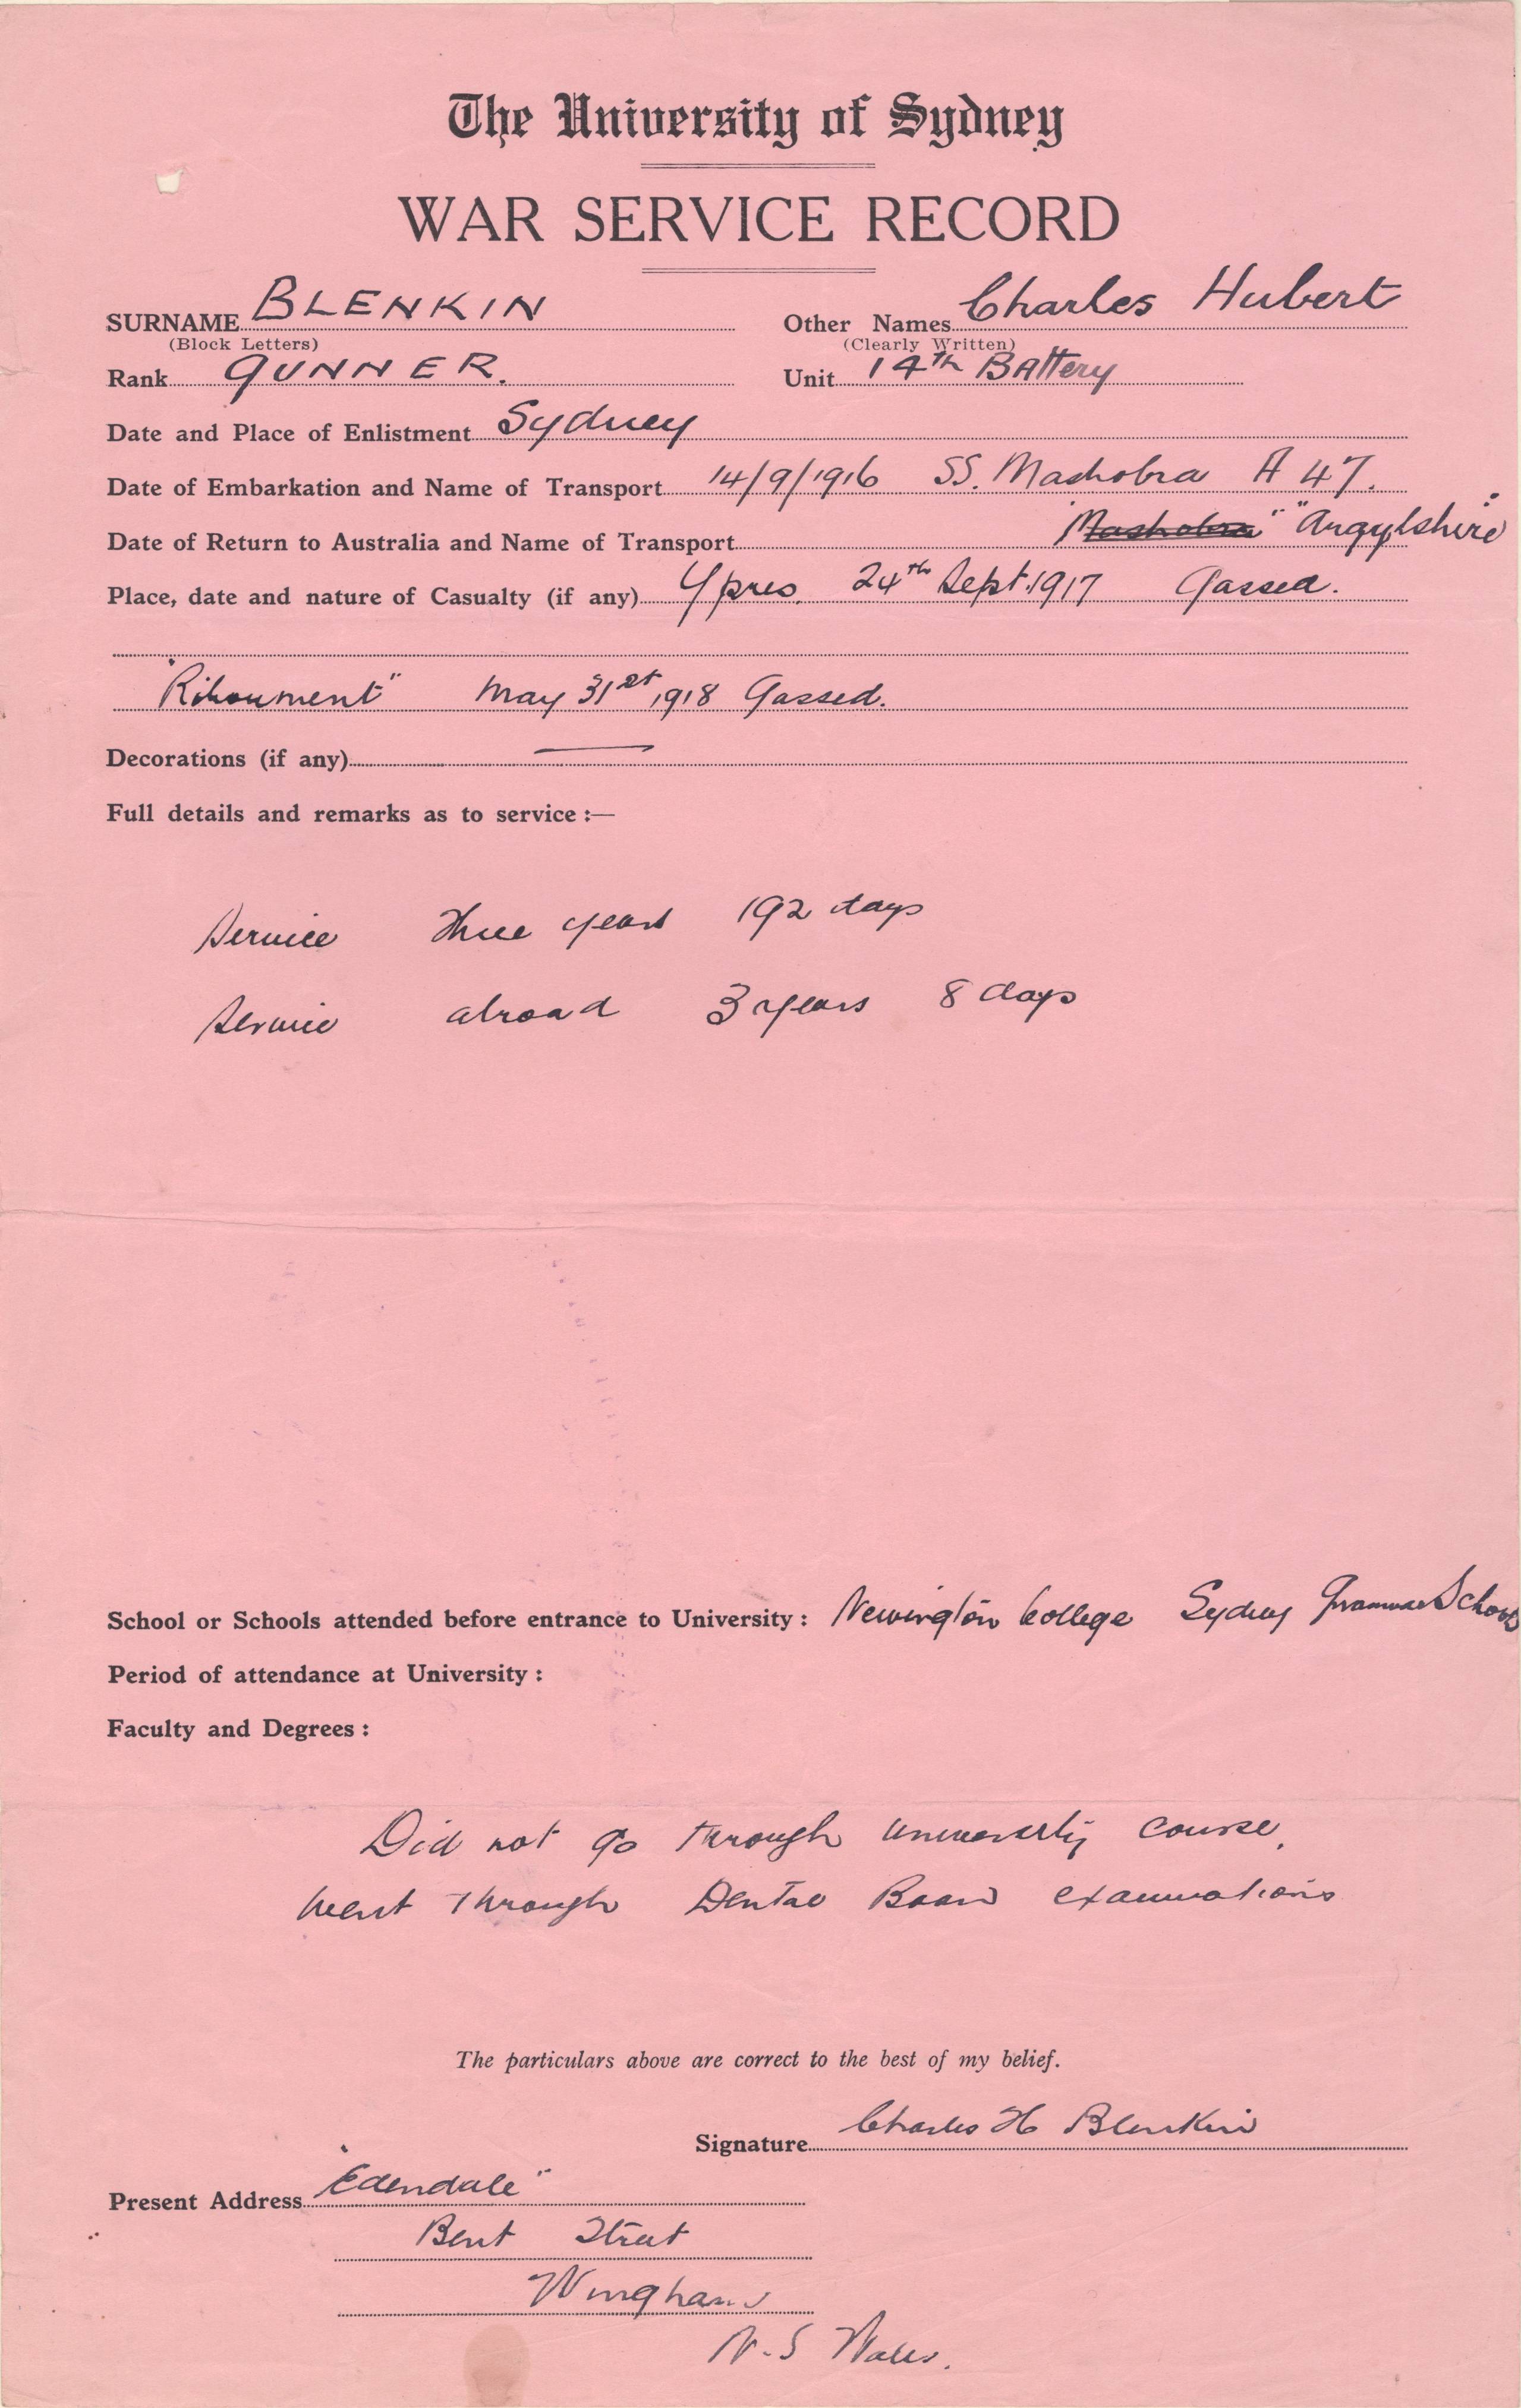 The University of Sydney
WAR SERVICE RECORD
SURNAME BLENKIN Other Names Charles Hubert
(Block Letters) (Clearly Written)
Rank GUNNER. Unit 14th BAttery
Date and Place of Enlistment Sydney
Date of Embarkation and Name of Transport 14/9/1916 SS. Mashobra A 47.
Date of Return to Australia and Name of Transport "Mashobra" "Argylshire"
Place, date and nature of Casualty (if any) Ypres. 24th Sept. 1917 Gassed.
"Riboument" May 31st, 1918 Gassed.
Decorations (if any) —
Full details and remarks as to service :—
Service three years 192 days
Service abroad 3 years 8 days
School or Schools attended before entrance to University : Newington College Sydney Grammar School
Period of attendance at University :
Faculty and Degrees :
Did not go through university course,
went through Dental Board examinations
The particulars above are correct to the best of my belief.
Signature Charles H Blenkin
Present Address "Edendale"
Bent Street
Wingham
N.S Wales.